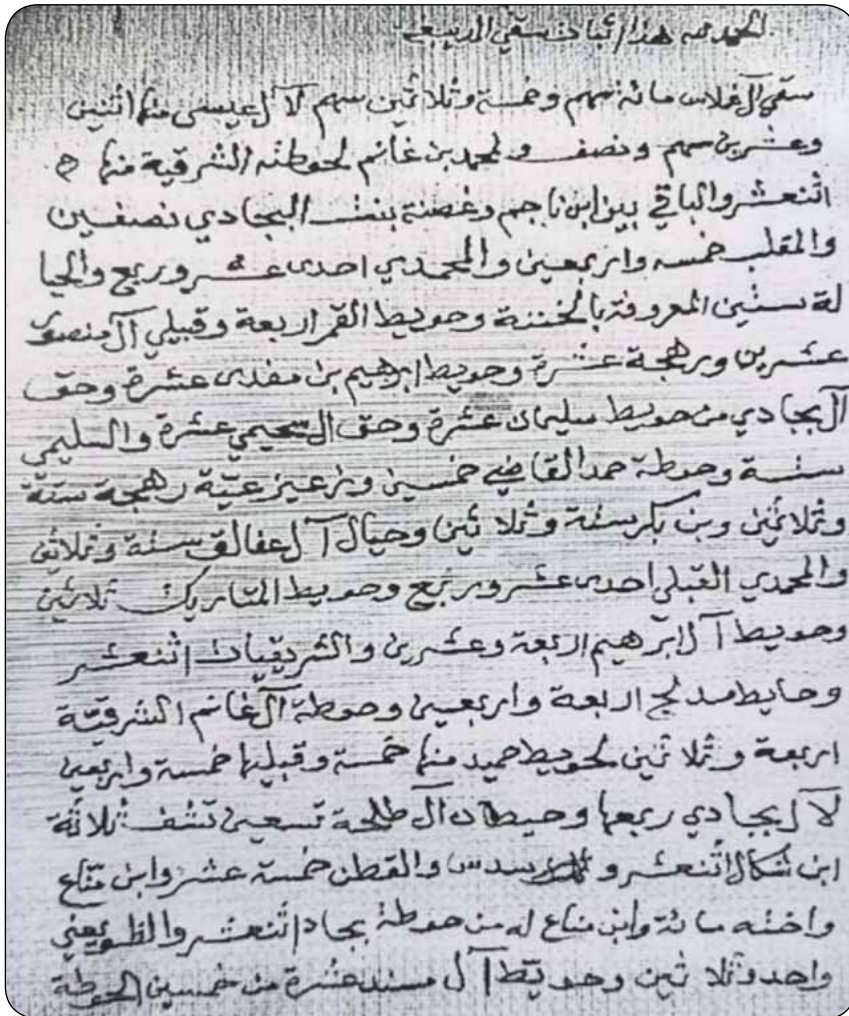 الحمد لله هذا اثبات سقي الربيعه
سقي آل غلاس مائة سهم وخمسة وثلاثين سهم لآل عيسى منها اثنين
وعشرين سهم ونصف ولمحمد بن غانم لحوطته الشرقية منها
اثنعشر والباقي بين ابن ناجم وغصنة بنت البجادي نصفين
والمقلب خمسه واربعين والمحمدي احدى عشر وربع والحيا
لة ستين المعروفة بالخننة وحويط القمر اربعة وقبيلي آل منصور
عشرين ورهجة عشرة وحويط ابرهيم بن مفدى عشرة وحق
آل بجادي من حويط سليمان عشرة وحق ال سحيمي عشرة والسليمي
ستة وحوطة حمد القاضي خمسين رهجة ستة
وثلاثين وبن بكر ستة وثلاثين وحيال آل عفالق ستة وثلاثين
والمحمدي القبلي احدى عشر وربع وحويط المتاريك ثلاثين
وحويط آل ابرهيم اربعة وعشرين والشريقيات اثنعشر
وحايط مدلج اربعة واربعين وحوطة آل غانم الشرقية
اربعة وثلاثين لحويط حميد منها خمسة وقبيلها خمسة واربعين
لآل بجادي ربعها وحيطان آل طلحة تسعين ثلاثة
ابن شكال اثنعشر وسدس والقطن خمسة عشر وابن مناع
واخته مائة وابن مناع له من حوطة بجاد اثنعشر والظويعني
واحد وثلاثين وحويط آل مسند عشرة من خمسين الحوطة